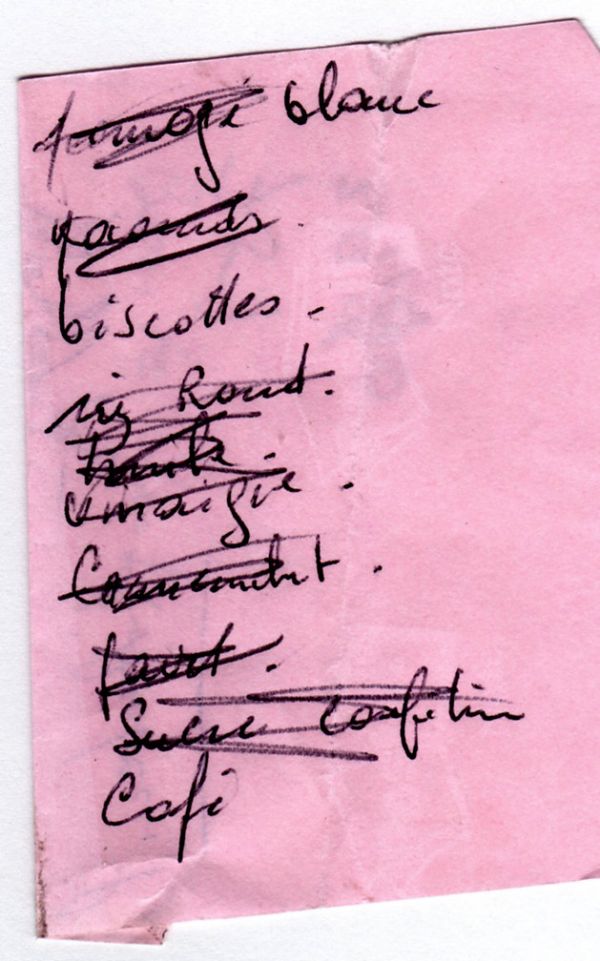 fromage blanc
yaourts.
biscottes.
riz Rond.
vinaigre.
Camembert.
Sucre confiture
Café